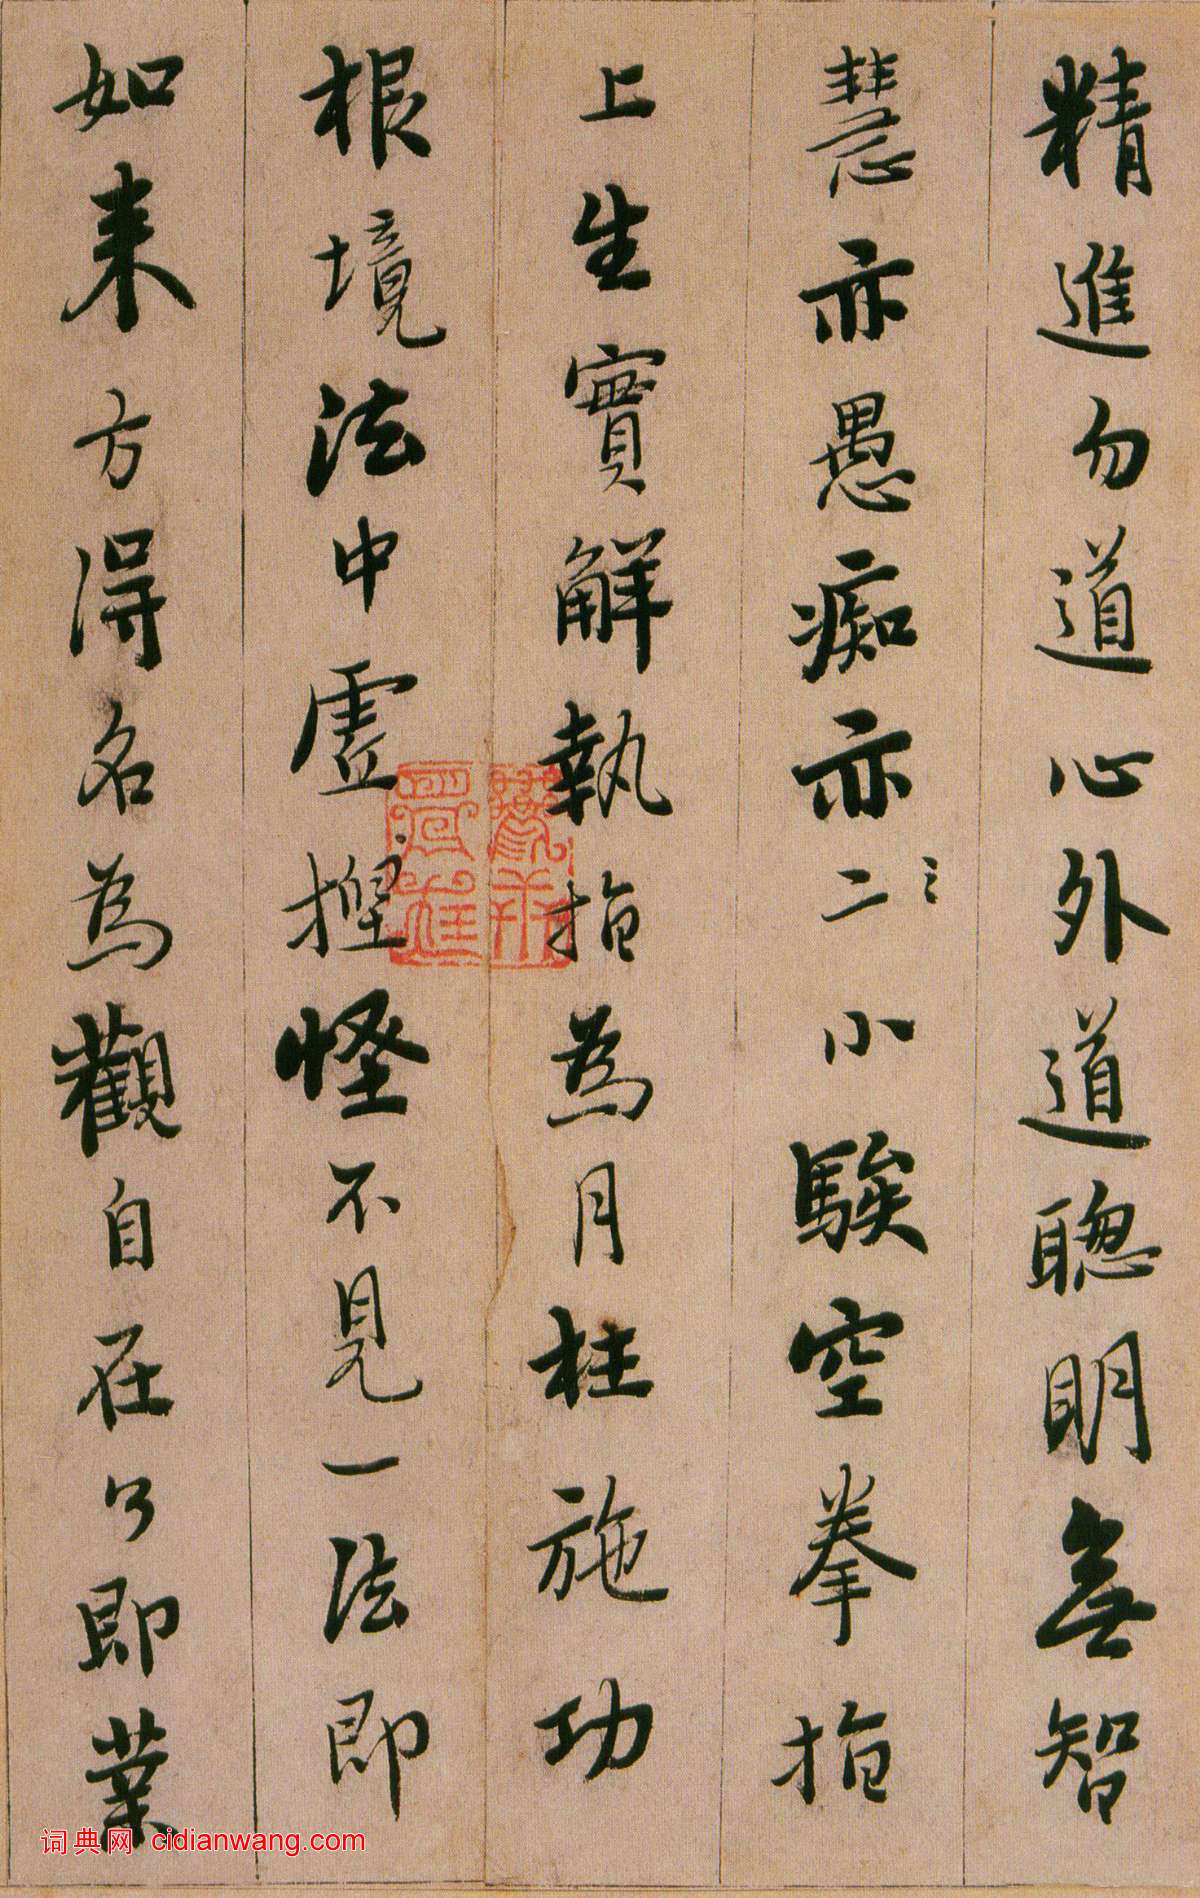 精進勿道心外道聦明無智
慧亦愚痴亦二小騃空拳指
上生實解執指為月枉施功
根境法中虗揑怪不見一法即
如来方得名為觀自在了即業
词典网 cidianwang.com